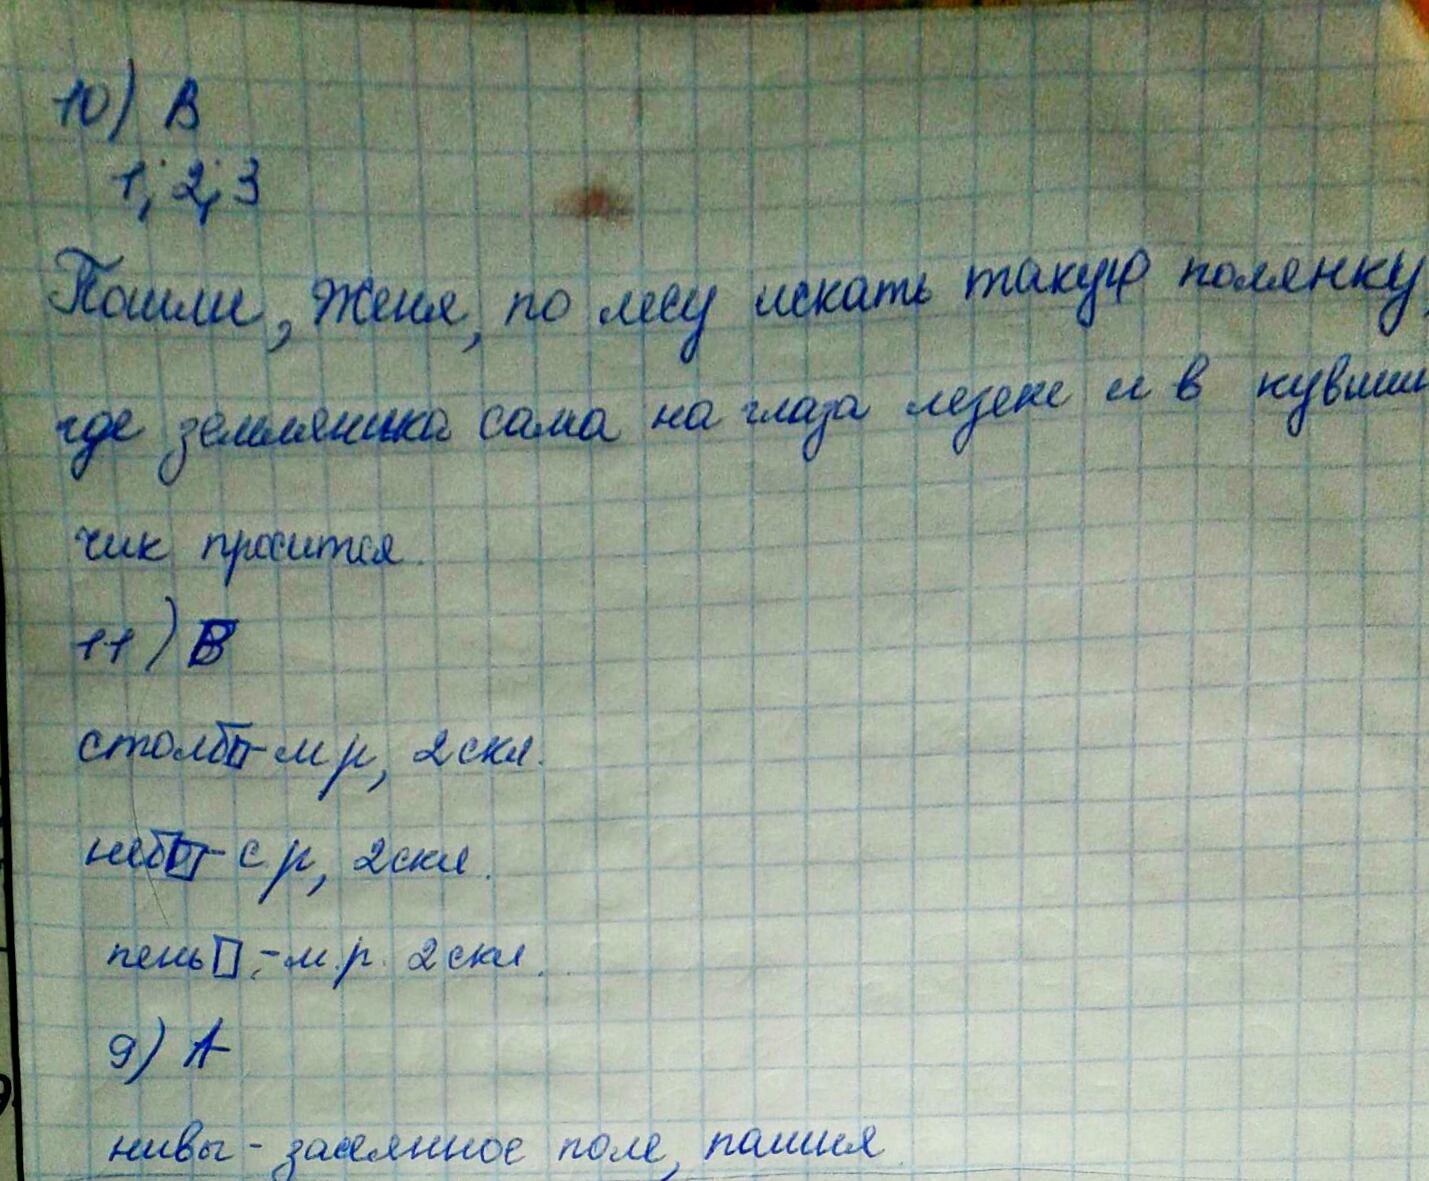 10) В
1, 2, 3
Пошли, Женя, по лесу искать такую полянку,
где земляника сама на глаза лезене и в кувшин
чик просится.
11) В
столб□-м р, 2 скл.
небо-с р, 2 скл.
пень□.-м.р. 2 скл.
9) А
нивы - засеянное поле, пашня